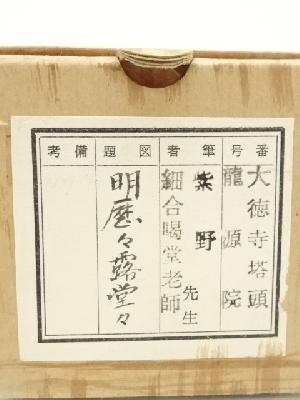 番号
大徳寺塔頭
龍源院
筆者
紫野 先生
細合喝堂老師
図題
明歴々露堂々
備考